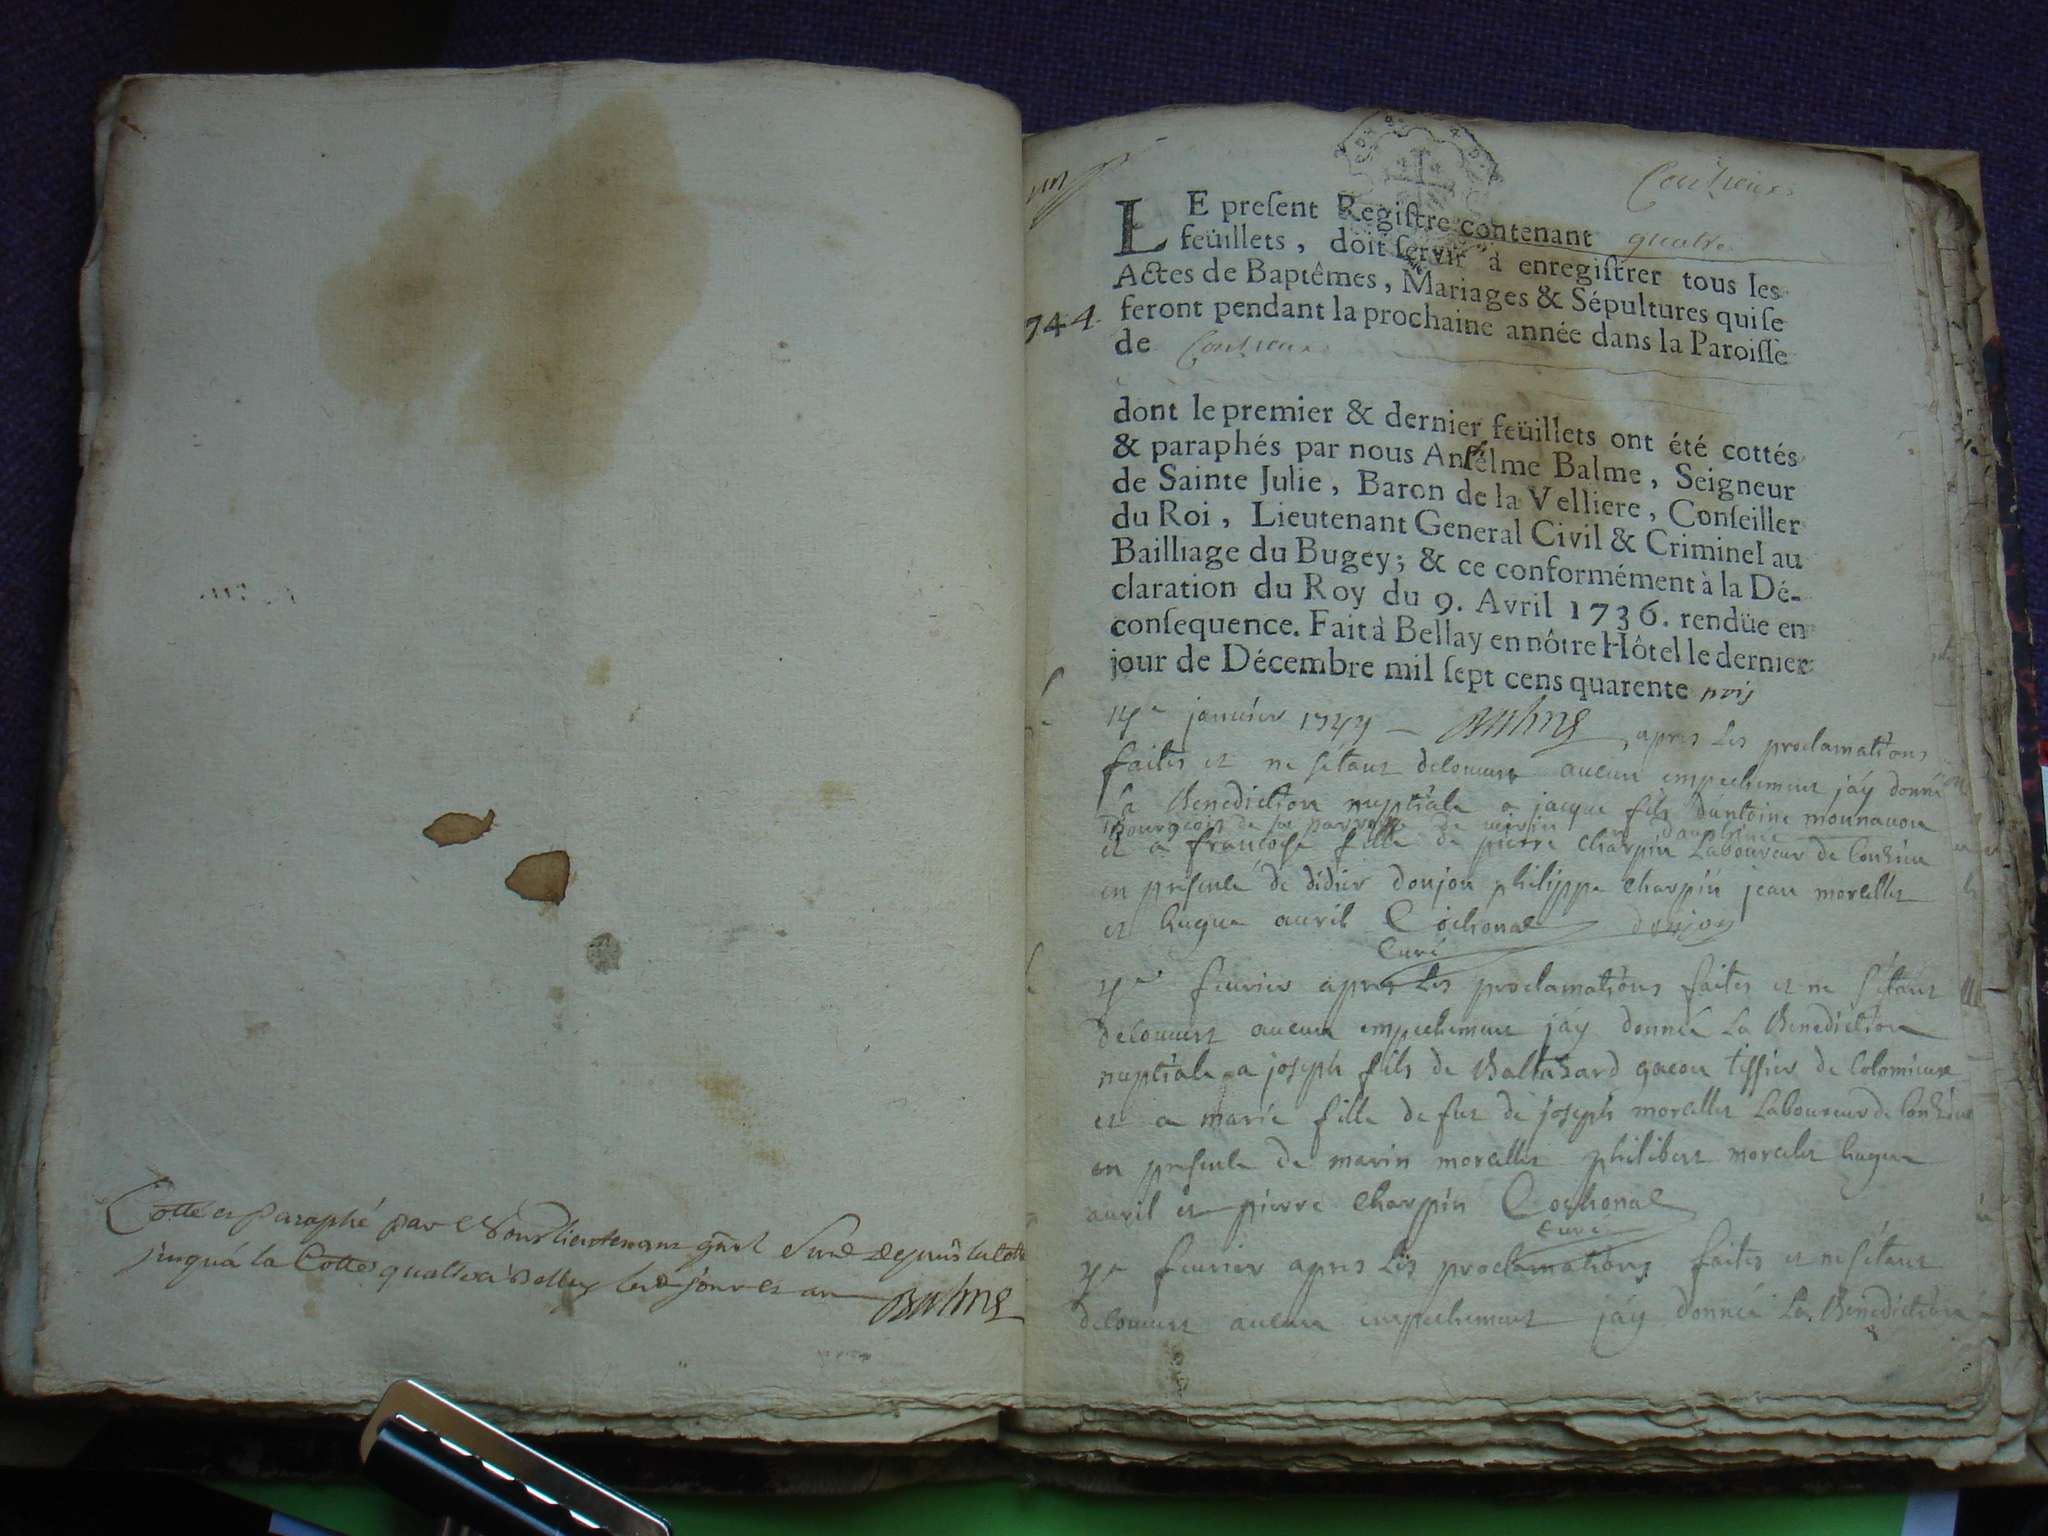 Cotté et paraphé par Nous lieutenant
jusqu'à la Cotte quattre à Belley les jour et an
Balme
un
Contreuex
LE preſent Regiſtre contenant quatre
feüillets, doit ſervir à enregiſtrer tous les
Actes de Baptêmes, Mariages & Sépultures qui ſe
744 feront pendant la prochaine année dans la Paroiſſe
de
dont le premier & dernier feüillets ont été cottés
& paraphés par nous Anſélme Balme, Seigneur
de Sainte Julie, Baron de la Velliere, Conſeiller
du Roi, Lieutenant General Civil & Criminel au
Bailliage du Bugey; & ce conformément à la Dé-
claration du Roy du 9. Avril 1736. rendüe en
conſequence. Fait à Bellay en nôtre Hôtel le dernier
jour de Décembre mil ſept cens quarente trois
janvier 1744 Balme apres les proclamations
faites et ne sétant decouvert aucun empechement jáy donné
la Benediction nuptiale a jacque fils dantoine
Bourgeois de la parroisse de
et a francoise fille de pierre charpin Laboureur de
en presence de didier donjon philippe charpin jean morellet
et hugue avril Cochonat donjon
Curé
fevrier apres les proclamations faites et ne sétant
decouvert aucun empechement jáy donné La Benediction
nuptiale a joseph fils de Baltasard gacon tissier de
et a marie fille de fut de joseph morellet Laboureur de
en presence de marin morellet philibert morelet hugue
avril et pierre charpin Cochonat
curé
fevrier apres les proclamations faites et ne sétant
decouvert aucun empechement jáy donné La Benediction